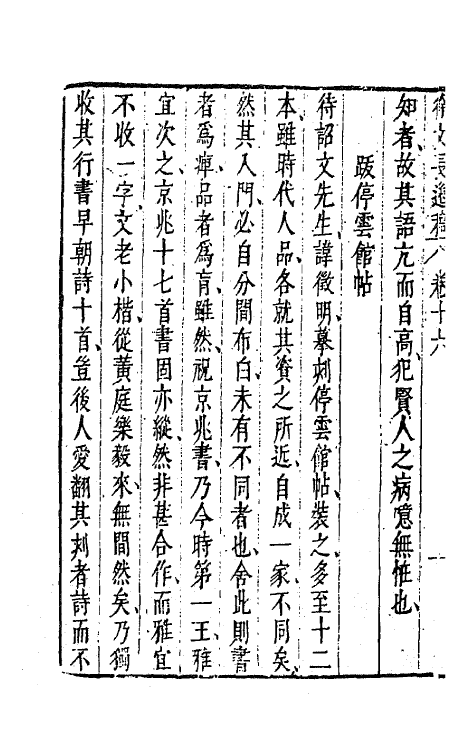 徐文長逸稿 卷十六
知者、故其語亢而自高、犯賢人之病、噫無恠也、
跋停雲館帖
待詔文先生諱徵明、摹刻停雲館帖、裝之、多至十二
本、雖時代人品、各就其資之所近、自成一家不同矣、
然其入門、必自分間布白、未有不同者也、舍此則書
者為痺、品者為盲、雖然、祝京兆書、乃今時第一、王雅
宜次之、京兆十七首書固亦縱、然非甚合作、而雅宜
不收一字、文老小楷、從黃庭樂毅來、無間然矣、乃獨
收其行書早朝詩十首、豈後人愛翻其刻者詩而不